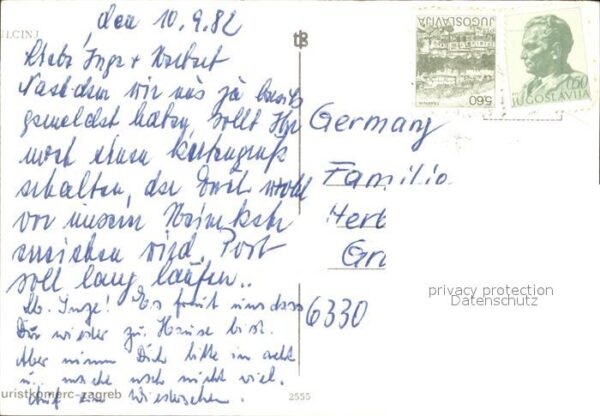 den 10.9.82
ULCINJ
Liebe Inge + Norbert
Nachdem wir uns ja bereits
gemeldet haben, sollt Ihr
noch einen Kartengruß
erhalten, der Euch wohl
vor unserer Heimkehr
erreichen wird. Post
soll lang laufen..
Lb. Inge! Es freut uns dass
Du wieder zu Hause bist.
Aber nimm Dich bitte in acht
u. mache noch nicht viel.
Auf ein Wiedersehen.
JUGOSLAVIJA
560
0,50
JUGOSLAVIJA
Germany
Familie
Herb
Gr
6330
privacy protection
Datenschutz
uristkomerc-zagreb
2555